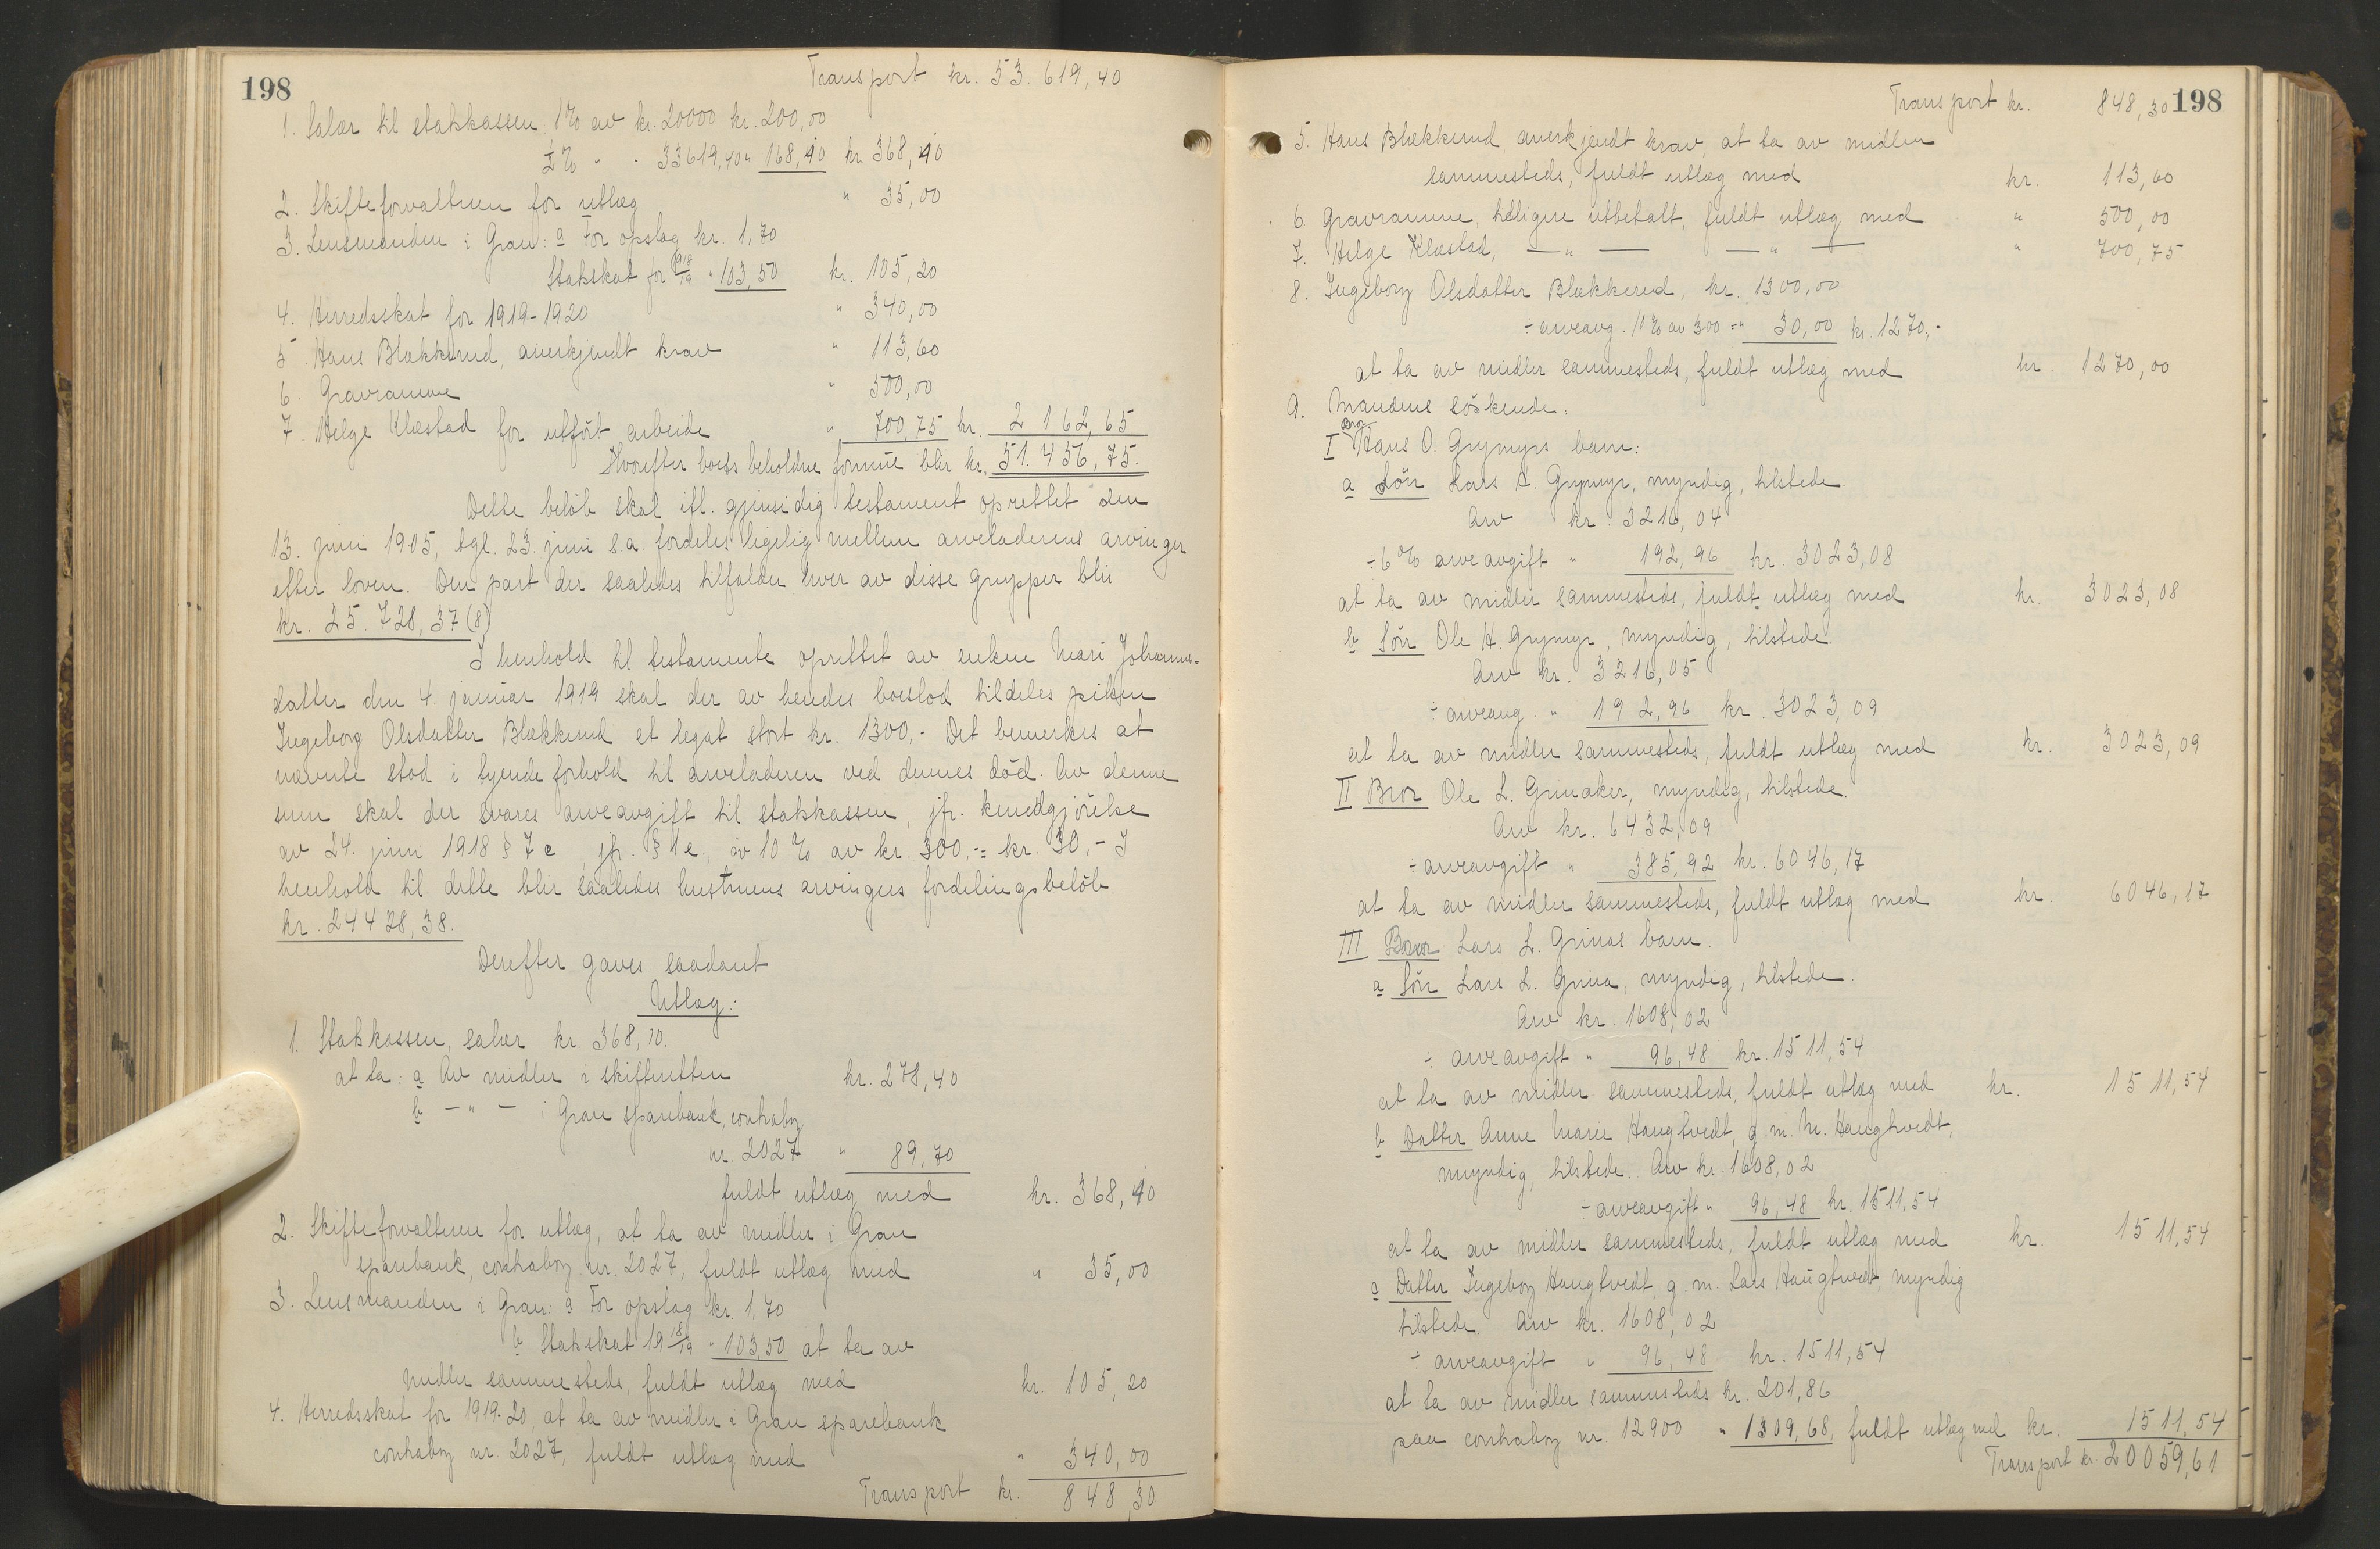 198
Transport kr. 53.619,40
1. Salær til statskassen 1% av kr. 20000 kr. 200,00
½% " " 33619,40 " 168,10 kr. 368,10
2. Skifteforvalteren for utlæg " 35,00
3. Lensmanden i Gran: a For opslag kr. 1,70
Statsskat for 1918/19 " 103,50 kr. 105,20
4. Herredsskat for 1919-1920 " 340,00
5. Hans Blækkerud, anerkjendt krav " 113,60
6. Gravramme " 500,00
7. Helge Klæstad for utført arbeide " 700,75 kr. 2 162,65
Hvorefter boets beholdne formue blir kr. 51.456,75.
Dette beløb skal ifl. gjensidig testament oprettet den
13. juni 1905, tgl. 23. juni s.a. fordeles ligelig mellem arveladerens arvinger
efter loven. Den part der saaledes tilfalder hver av disse grupper blir
kr. 25.728,37(8)
I henhold til testamente oprettet av enken Mari Johannes-
datter den 4. januar 1919 skal der av hendes boeslod tildeles piken
Ingeborg Olsdatter Blækkerud et legat stort kr. 1300,- Det bemerkes at
nævnte stod i tyende forhold til arveladeren ved dennes død. Av denne
sum skal der svares arveavgift til statskassen, jfr. kundgjørelse
av 24. juni 1918 § 7 c, jfr. § 1 e., av 10% av kr. 300,- = kr. 30,- I
henhold til dette blir saaledes hustruens arvingers fordelingsbeløb
kr. 24428,38.
Derefter gaves saadant
Utlæg:
1. Statskassen, salær kr. 368,10.
at ta: a Av midler i skifteretten kr. 278,40
b — " — i Gran sparebank, contrabog
nr. 2027 " 89,70
fuldt utlæg med kr. 368,10
2. Skifteforvalteren for utlæg, at ta av midler i Gran
sparebank, contrabog nr. 2027, fuldt utlæg med " 35,00
3. Lensmanden i Gran: a For opslag kr. 1,70
b Statsskat 1918/19 " 103,50 at ta av
midler sammesteds, fuldt utlæg med kr. 105,20
4. Herredsskat for 1919-20, at ta av midler i Gran sparebank
contrabog nr. 2027, fuldt utlæg med " 340,00
Transport kr. 848,30
Transport kr. 848,30 198
5. Hans Blækkerud, anerkjendt krav, at ta av midler
sammesteds, fuldt utlæg med kr. 113,60
6. Gravramme, tidligere utbetalt, fuldt utlæg med " 500,00
7. Helge Klæstad, — " — — " — " 700,75
8. Ingeborg Olsdatter Blækkerud, kr. 1300,00
÷ arveavg. 10% av 300 = " 30,00 kr. 1270,-
at ta av midler sammesteds, fuldt utlæg med kr. 1270,00
9. Mandens søskende:
I Bror Hans O. Grymyrs barn:
a Søn Lars H. Grymyr, myndig, tilstede
Arv kr. 3216,04
÷ 6% arveavgift " 192,96 kr. 3023,08
at ta av midler sammesteds, fuldt utlæg med kr. 3023,08
b Søn Ole H. Grymyr, myndig, tilstede.
Arv kr. 3216,05
÷ arveavg. " 192,96 kr. 3023,09
at ta av midler sammesteds, fuldt utlæg med kr. 3023,09
II Bror Ole L. Grinaker, myndig, tilstede.
Arv kr. 6432,09
÷ arveavgift " 385,92 kr. 6046,17
at ta av midler sammesteds, fuldt utlæg med kr. 6046,17
III Bror Lars L. Grinas barn.
a Søn Lars L. Grina, myndig, tilstede.
Arv kr. 1608,02
÷ arveavgift " 96,48 kr. 1511,54
at ta av midler sammesteds, fuldt utlæg med kr. 1511,54
b Datter Anne Marie Haugtvedt, g.m. M. Haugtvedt,
myndig, tilstede. Arv kr. 1608,02
÷ arveavgift " 96,48 kr. 1511,54
at ta av midler sammesteds, fuldt utlæg med kr. 1511,54
c Datter Ingeborg Haugtvedt, g.m. Lars Haugtvedt, myndig
tilstede. Arv kr. 1608,02
÷ arveavgift " 96,48 kr. 1511,54
at ta av midler sammesteds kr. 201,86
paa contrabog nr. 12900 " 1309,68, fuldt utlæg med kr. 1511,54
Transport kr. 20059,61